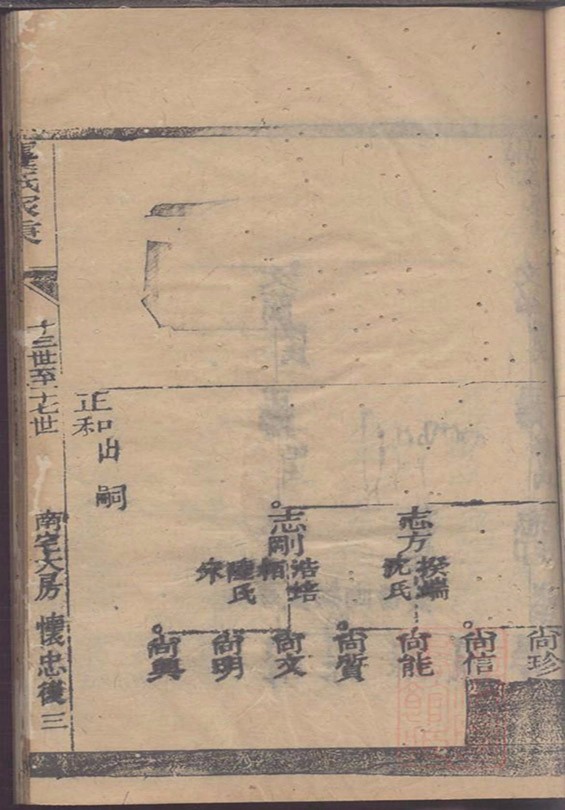 尚珍
尚信
志方
揆端
沈氏
尚能
尚質
志剛
浩培
陸氏
尚文
尚明
尚興
正和出嗣
氏家乘
十三世至十七世
南宅大房
懷忠後
三